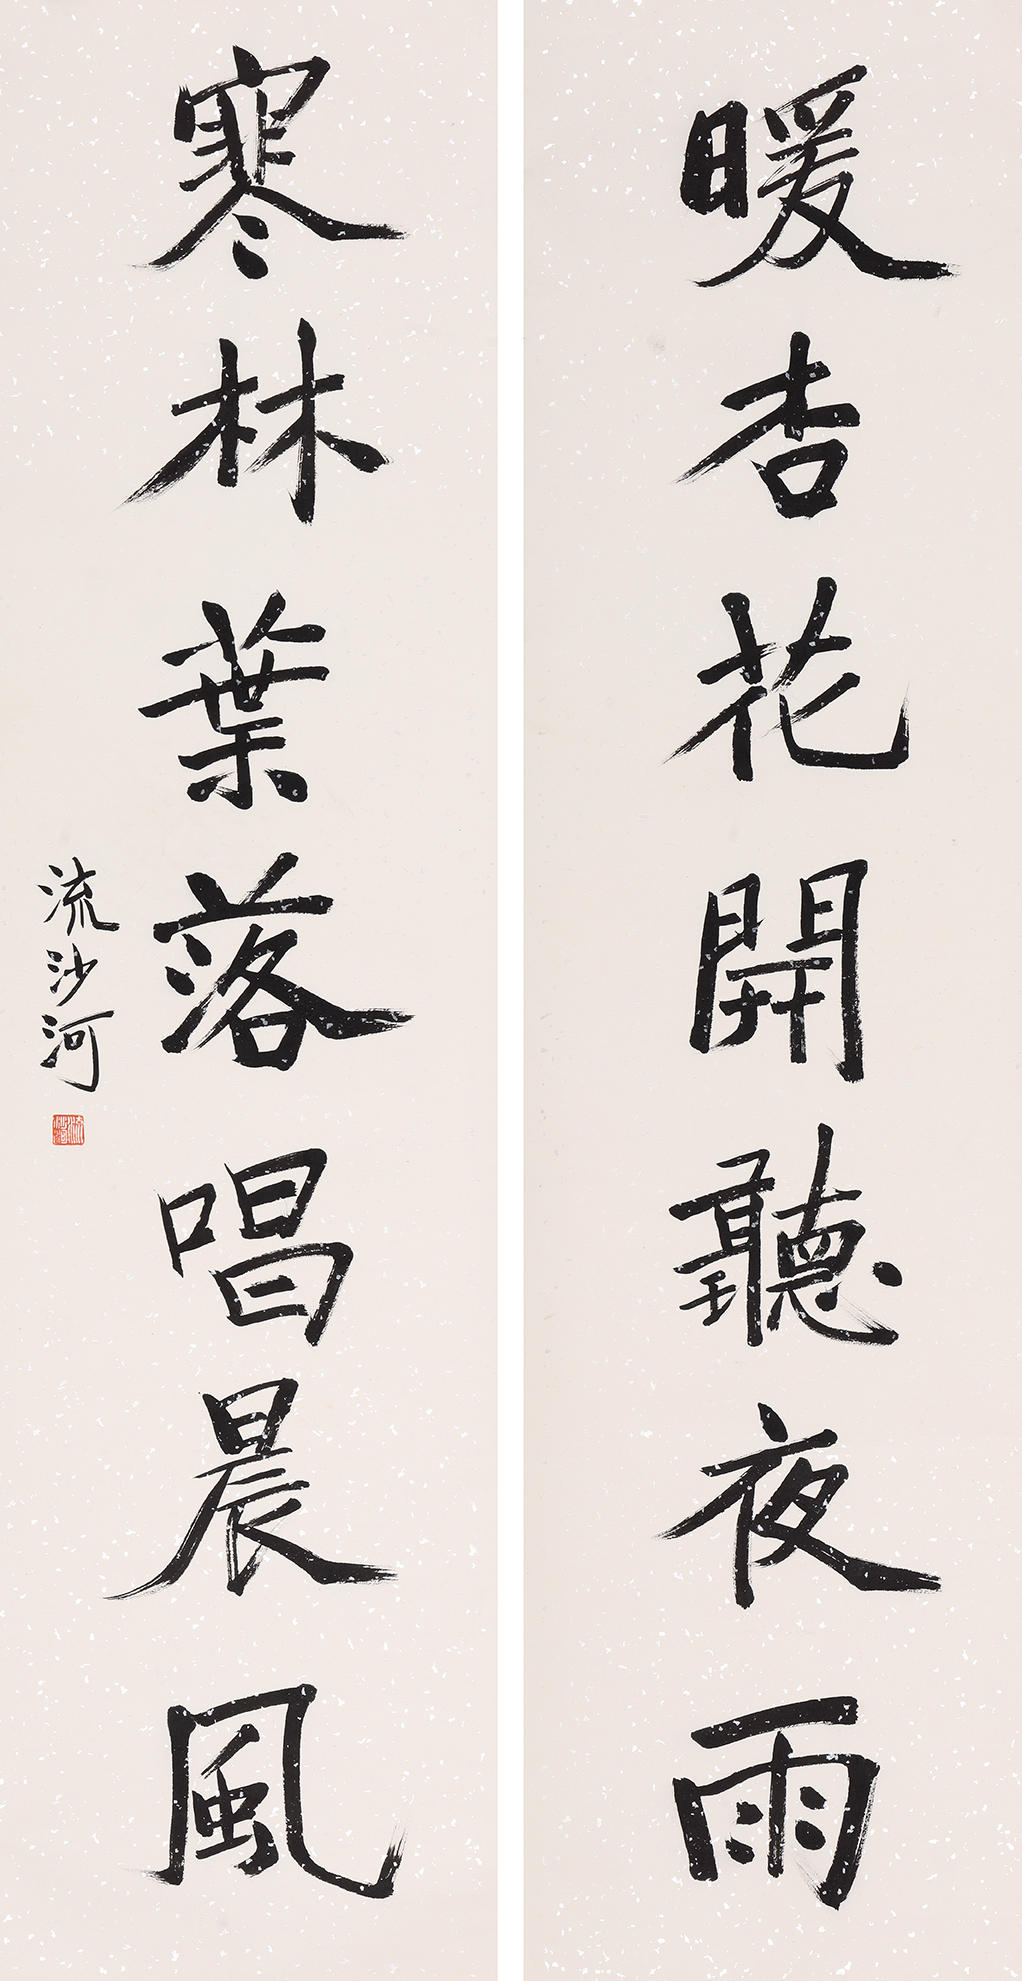 暖杏花開聽夜雨
寒林葉落唱晨風
流沙河
流沙河